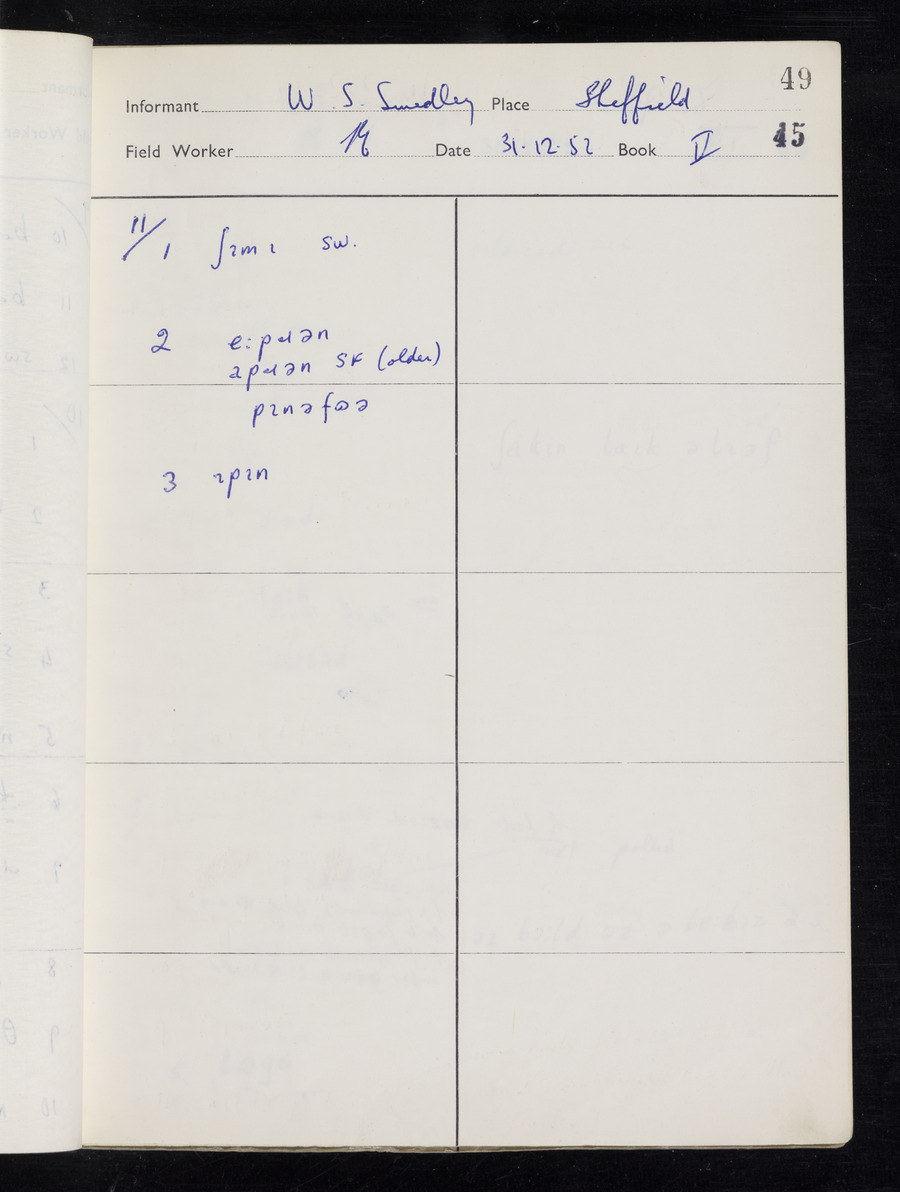 49
Informant W. S. Smedley Place Sheffield
Field Worker Date 31.12.52 Book V 45
11/1 ʃɪmɪ sw.
2 e:pɹən
apɹən SF (older)
pɪnəfɷə
3 ɪpɪn